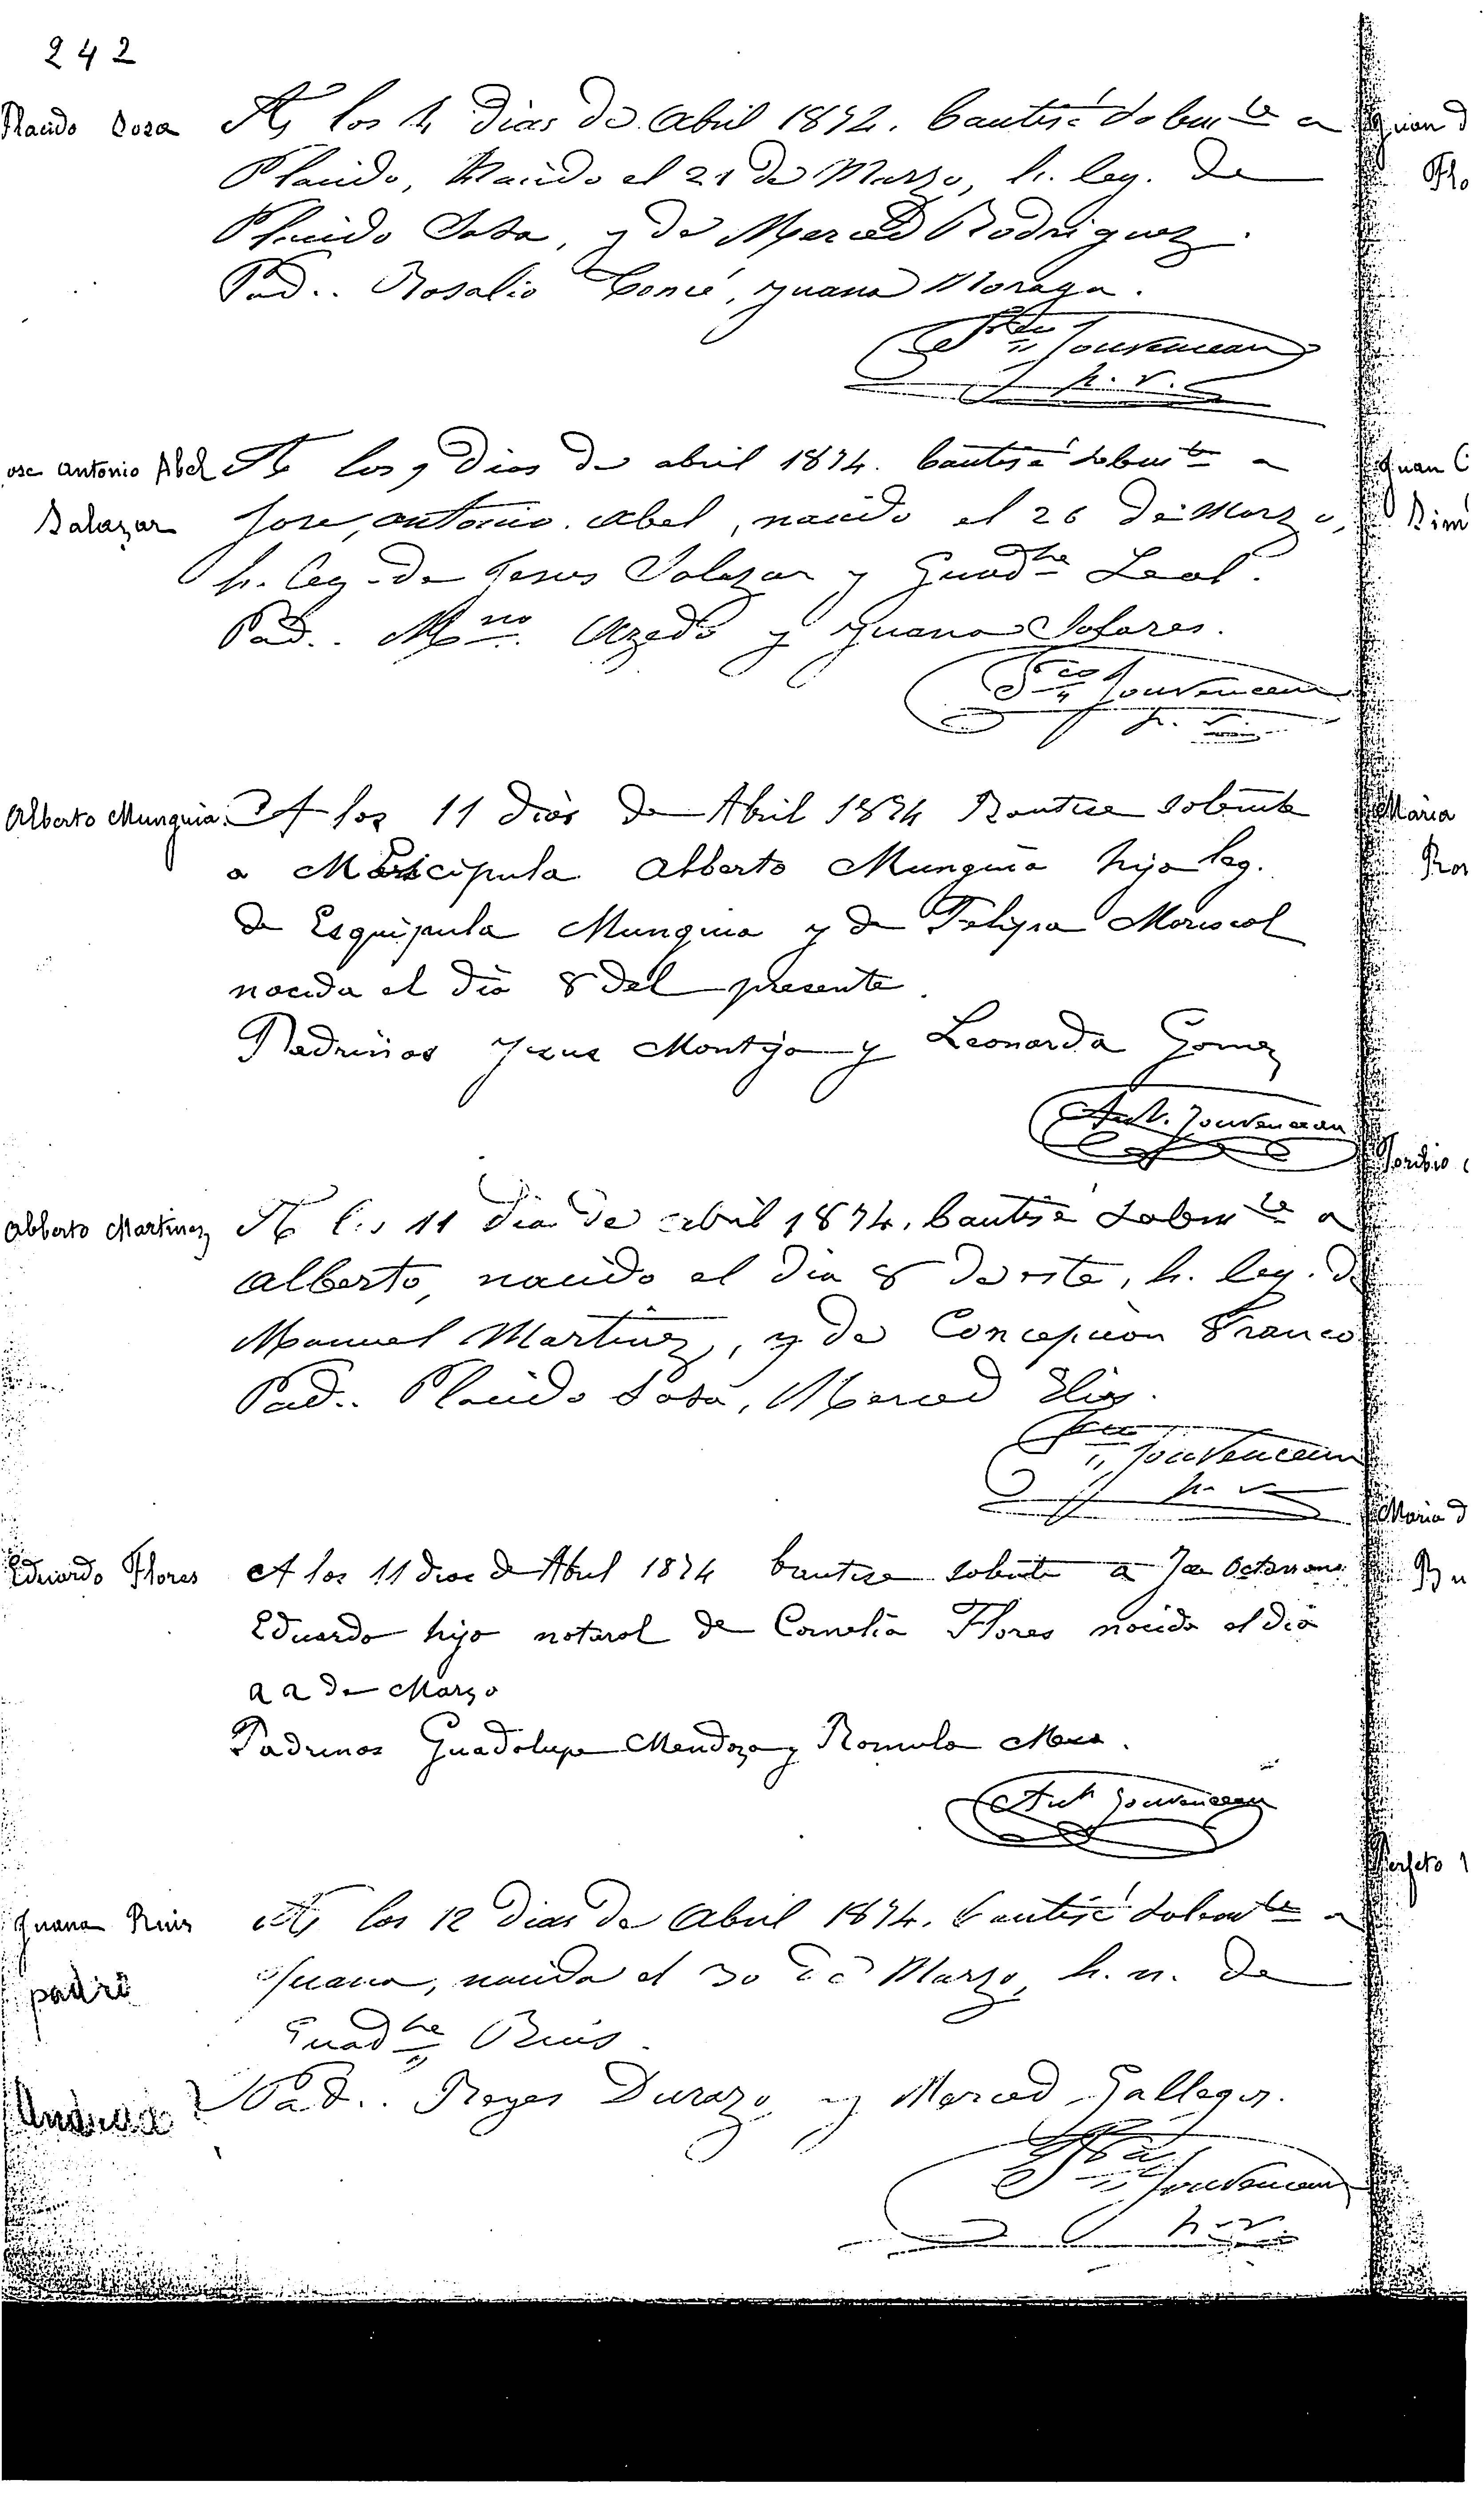 242
Placido Sosa
A los 4 dias de Abril 1874. bautisé solemte a
Placido, Nacido el 21 de Marzo, h. leg. de
Placido Sosa, y de Merced Rodriguez.
Pad.. Rosalio, Juana Moraga.
Fco Jouvenceau
p. v.
ose Antonio Abel
Salazar
A los 9 dias de abril 1874. bautisé solemte a
Jose, antonio. abel, nacido el 26 de Marzo,
h. leg. de Jesus Salazar y Guadpe Leal.
Pad.. Mno. Azedo y Juana Solares.
Fco Jouvenceau
p. v.
Alberto Munguia.
A los 11 dias de Abril 1874 Bautise solemte
a Alberto Munguia hijo leg.
de Esquipula Munguia y de Felipa Mariscal
nacida el dia 8 del presente.
Padrinos Jesus Montijo y Leonarda Gomez
Ant. Jouvenceau
Alberto Martinez
A los 11 dias de abril 1874. bautisé solemte a
Alberto, nacido el dia 8 de este, h. leg. de
Manuel Martinez, y de Concepcion Franco
Pad.. Placido Sosa, Merced Elias.
Fco Jouvenceau
p. v.
Eduardo Flores
A los 11 dias de Abril 1874 bautise solemte a
Eduardo hijo natural de Cornelia Flores nacido el dia
22 de Marzo
Padrinos Guadalupe Mendoza y Romula Meza.
Ant Jouvenceau
Juana Ruis
padre
A los 12 dias de Abril 1874. bautisé solemte a
Juana, nacida el 30 de Marzo, h. n. de
Guadpe Ruis.
Pad.. Reyes Durazo y Merced Gallegos.
Fco Jouvenceau
p. v.
Juan
Flo
Juan C
Sim
Maria
Ror
Toribio
Maria d
Bu
Perfeto